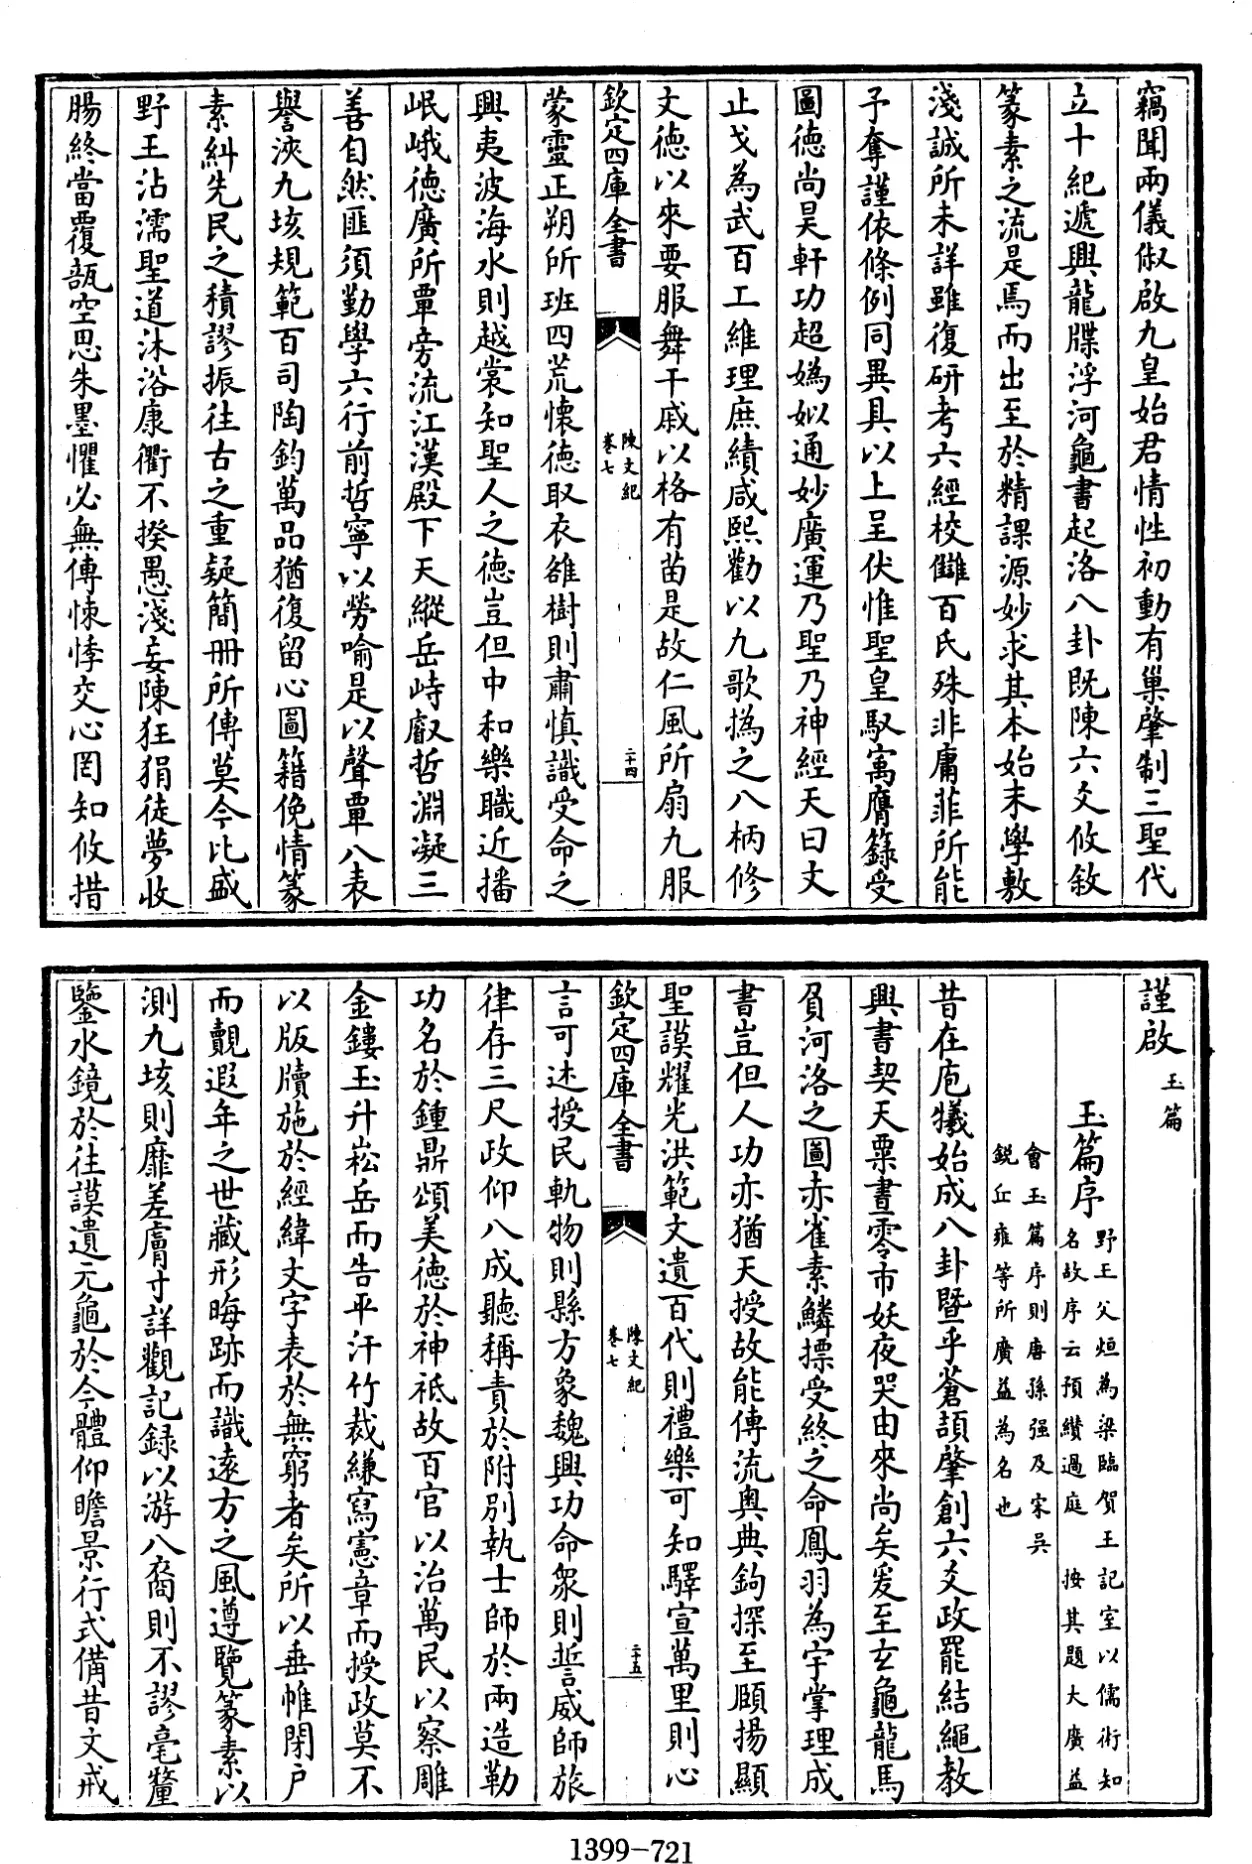 竊聞兩儀俶啟九皇始君情性初動有巢肇制三聖代
立十紀遞興龍牒浮河龜書起洛八卦既陳六爻攸敘
篆素之流是焉而出至於精課源妙求其本始末學敷
淺誠所未詳雖復研考六經校讎百氏殊非庸菲所能
予奪謹依條例同異具以上呈伏惟聖皇馭寓膺籙受
圖德尚昊軒功超媯姒通妙廣運乃聖乃神經天曰文
止戈為武百工維理庶績咸熙勸以九歌撝之八柄修
文德以來要服舞干戚以格有苗是故仁風所扇九服
欽定四庫全書
陳文紀
卷七
二十四
蒙靈正朔所班四荒懷德取衣雒樹則肅慎識受命之
興夷波海水則越裳知聖人之德豈但中和樂職近播
岷峨德廣所覃旁流江漢殿下天縱岳峙叡哲淵凝三
善自然匪須勤學六行前哲寧以勞喻是以聲覃八表
譽浹九垓規範百司陶鈞萬品猶復留心圖籍俛情篆
素糾先民之積謬振往古之重疑簡冊所傳莫今比盛
野王沾濡聖道沐浴康衢不揆愚淺妄陳狂狷徒夢收
腸終當覆瓿空思朱墨懼必無傳悚悸交心罔知攸措
謹啟 玉篇
玉篇序 野王父烜為梁臨賀王記室以儒術知
名故序云預纘過庭 按其題大廣益
會玉篇序則唐孫强及宋吳
鋭丘雍等所廣益為名也
昔在庖犧始成八卦暨乎蒼頡肇創六爻政罷結繩教
興書契天粟晝零市妖夜哭由來尚矣爰至玄龜龍馬
負河洛之圖赤雀素鱗摽受終之命鳳羽為字掌理成
書豈但人功亦猶天授故能傳流奧典鉤探至賾揚顯
聖謨耀光洪範文遺百代則禮樂可知驛宣萬里則心
欽定四庫全書
陳文紀
卷七
二十五
言可述授民軌物則縣方象魏興功命衆則誓威師旅
律存三尺政仰八成聽稱責於附別執士師於兩造勒
功名於鍾鼎頌美德於神祇故百官以治萬民以察雕
金鏤玉升崧岳而告平汗竹裁縑寫憲章而授政莫不
以版牘施於經緯文字表於無窮者矣所以垂帷閉户
而覿遐年之世藏形晦跡而識遠方之風遵覽篆素以
測九垓則靡差膚寸詳觀記録以游八裔則不謬毫釐
鑒水鏡於往謨遺元龜於今體仰瞻景行式備昔文戒
1399-721